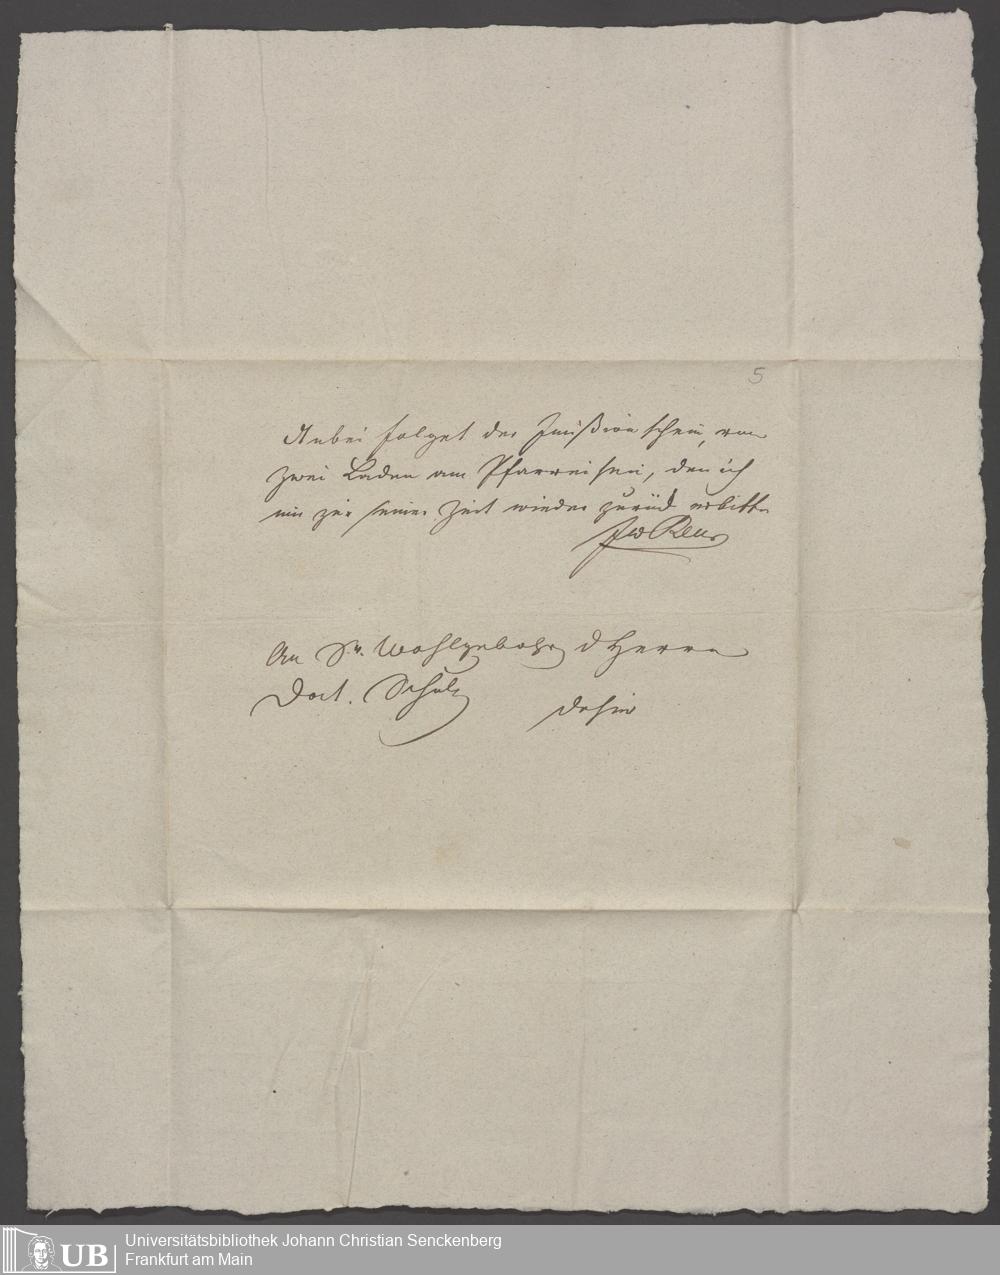 5
Anbei folget der Imißion schein, von
zwei Laden am Pfarreisen, den ich
mir zu seiner Zeit wieder zurück erbitte
An Sr. Wohlgebohr d Herrn
Doct. Schulz
dahier
UB
Universitätsbibliothek Johann Christian Senckenberg
Frankfurt am Main